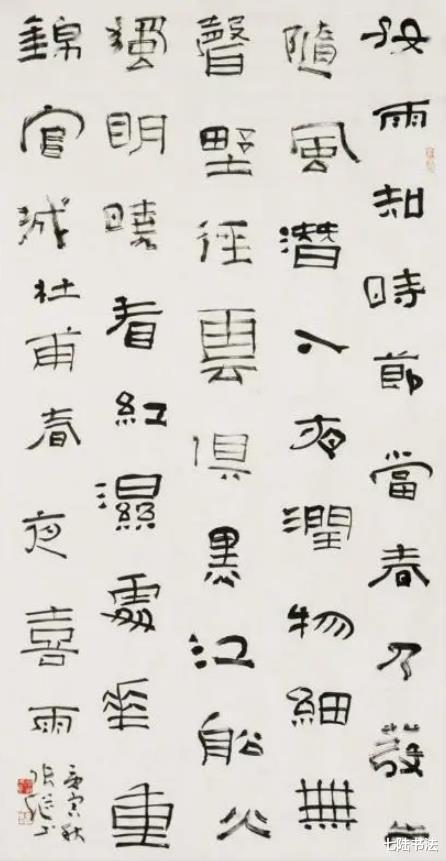 好雨知時節當春乃發生
隨風潛入夜潤物細無
聲野徑雲俱黑江船火
獨明曉看紅濕處花重
錦官城杜甫春夜喜雨
庚寅秋
七陆书法